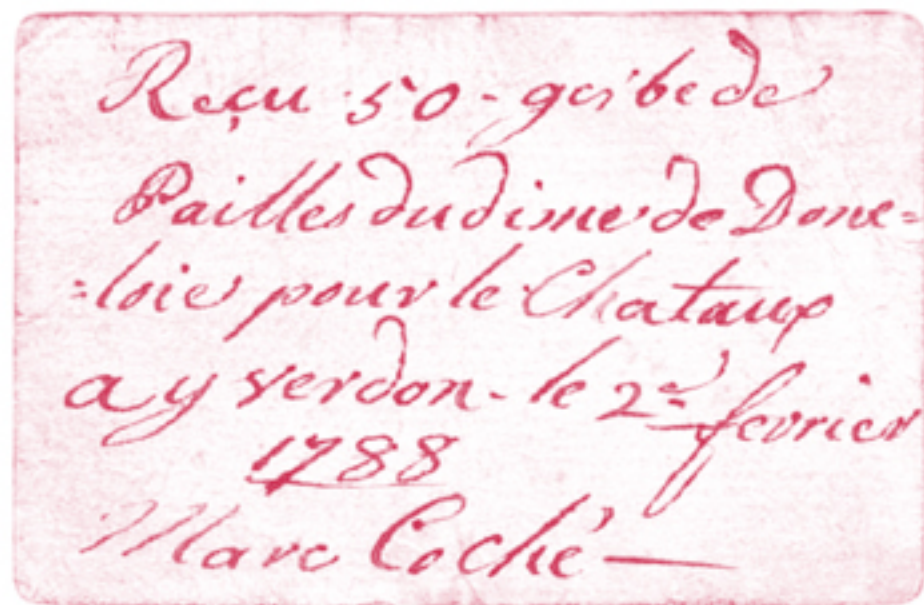 Reçu 50 - gerbe de
Pailles du dime de Done=
=loie pour le Chataux
a yverdon - le 2d fevrier
1788
Marc Coché —